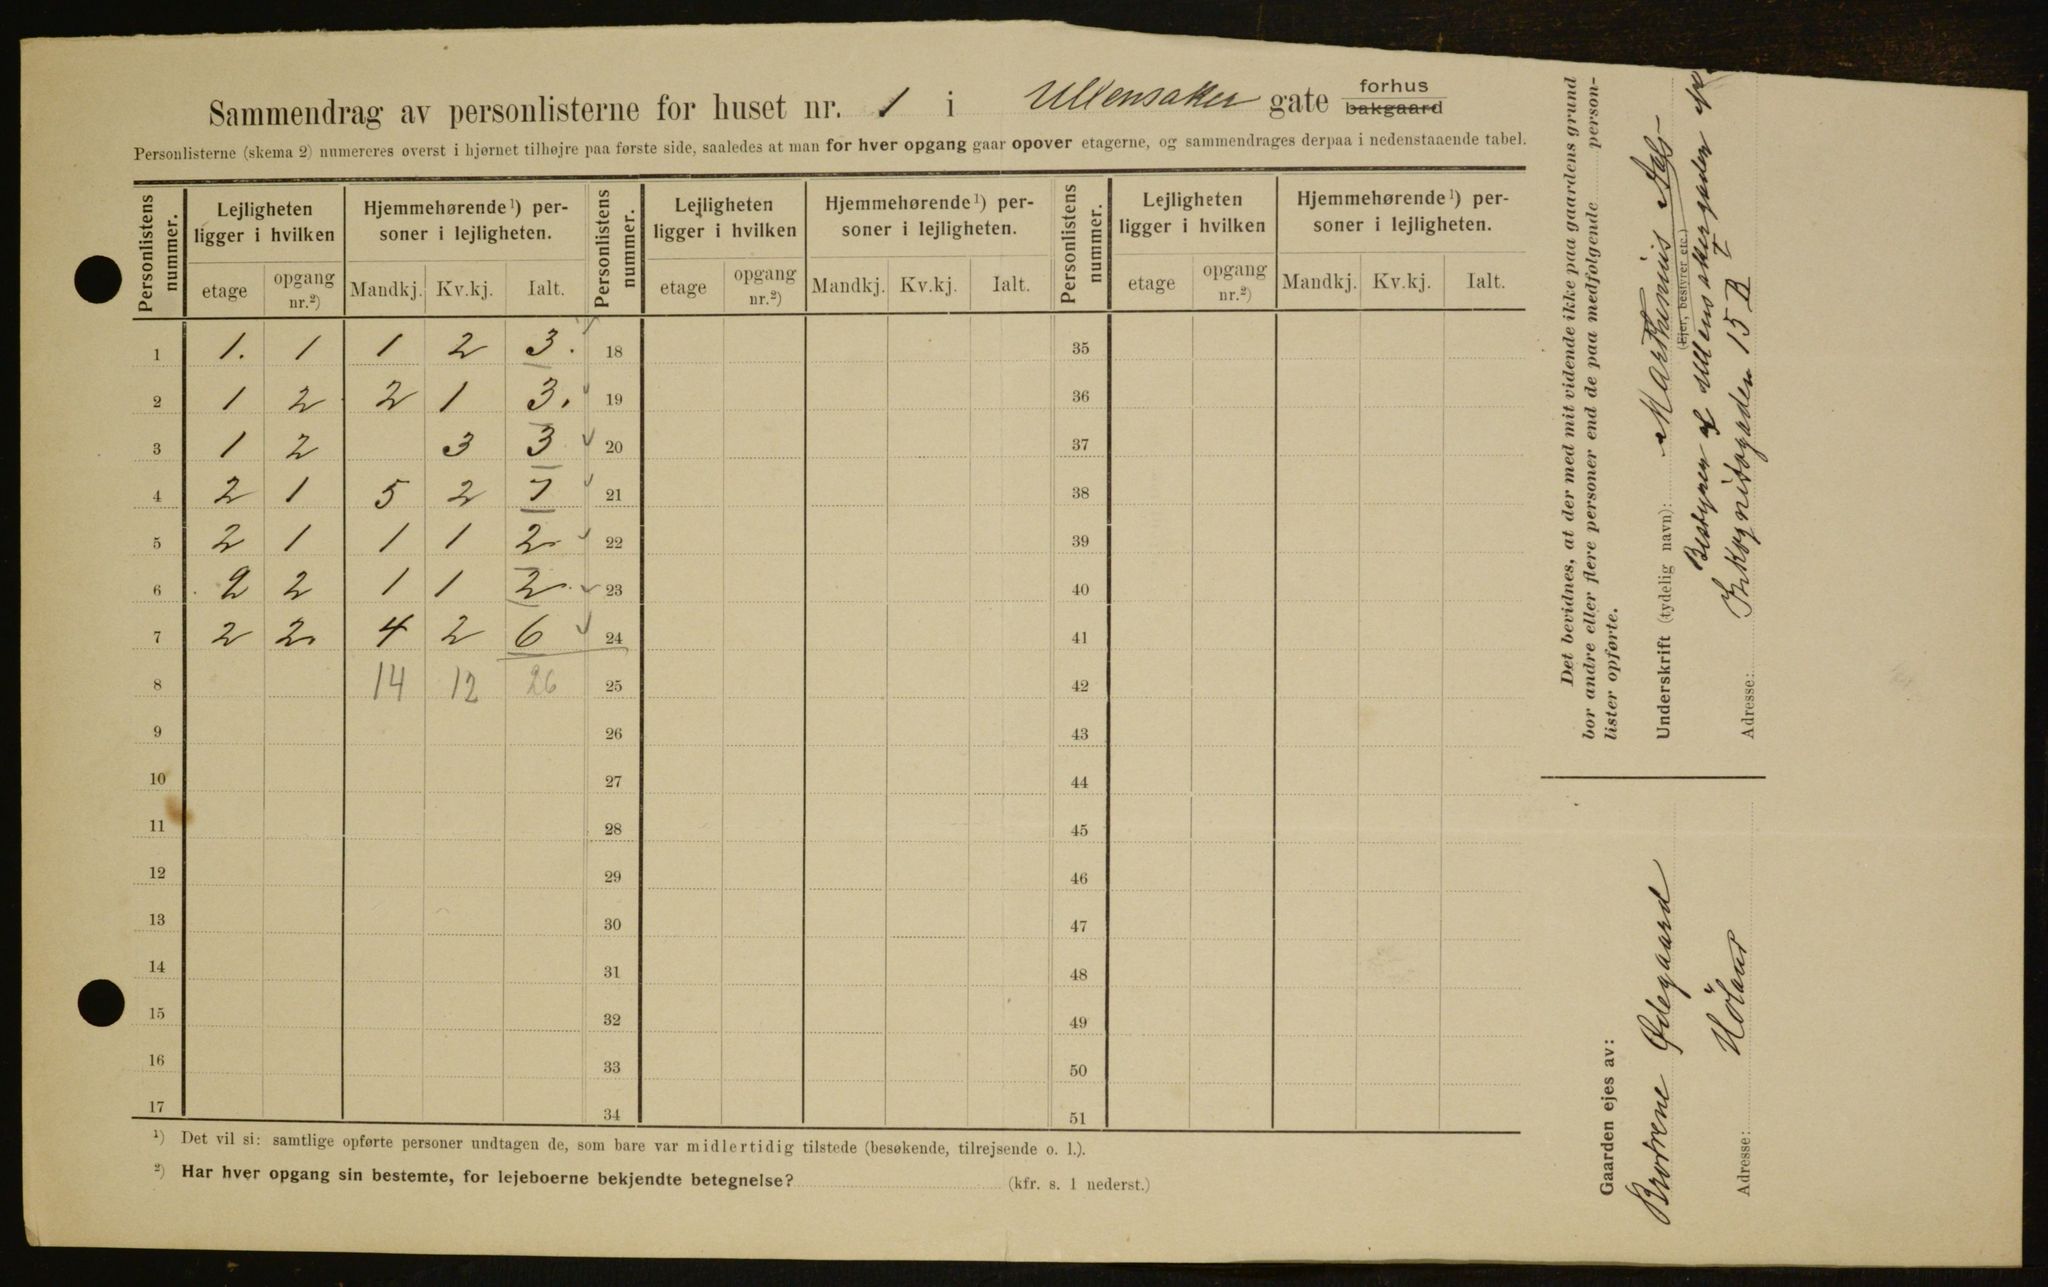 Sammendrag av personlisterne for huset nr. 1 i Ullensaker gate forhus bakgaard
Personlisterne (skema 2) numereres øverst i hjørnet tilhøjre paa første side, saaledes at man for hver opgang gaar opover etagerne, og sammendrages derpaa i nedenstaaende tabel.
Personlistens nummer. Lejligheten ligger i hvilken Hjemmehørende ¹) personer i lejligheten. Personlistens nummer. Lejligheten ligger i hvilken Hjemmehørende ¹) personer i lejligheten. Personlistens nummer. Lejligheten ligger i hvilken Hjemmehørende ¹) personer i lejligheten.
etage opgang nr.²) Mandkj. Kv.kj. Ialt. etage opgang nr.²) Mandkj. Kv.kj. Ialt. etage opgang nr.²) Mandkj. Kv.kj. Ialt.
1 1. 1 1 2 3. 18 35
2 1 2 2 1 3. 19 36
3 1 2 3 3 20 37
4 2 1 5 2 7 21 38
5 2 1 1 1 2 22 39
6 2 2 1 1 2 23 40
7 2 2 4 2 6 24 41
8 14 12 26 25 42
9 26 43
10 27 44
11 28 45
12 29 46
13 30 47
14 31 48
15 32 49
16 33 50
17 34 51
¹) Det vil si: samtlige opførte personer undtagen de, som bare var midlertidig tilstede (besøkende, tilrejsende o. l.).
²) Har hver opgang sin bestemte, for lejeboerne bekjendte betegnelse? (kfr. s. 1 nederst.)
Det bevidnes, at der med mit vidende ikke paa gaardens grund
bor andre eller flere personer end de paa medfølgende personlister opførte.
Underskrift (tydelig navn): Marthinius
(Ejer, bestyrer etc.)
Bestyrer af Ullensakergaden
Adresse: Inkognitogaden 15 B
Gaarden ejes av:
Brødrene Ødegaard
Adresse: Höland